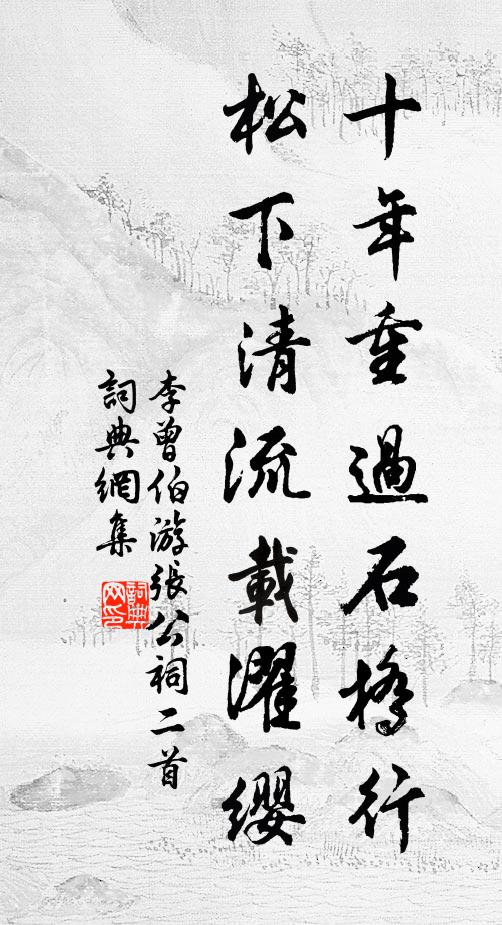 十年重過石橋行
松下清流載濯纓
李曾伯游張公祠二首
詞典網集
詞典網印